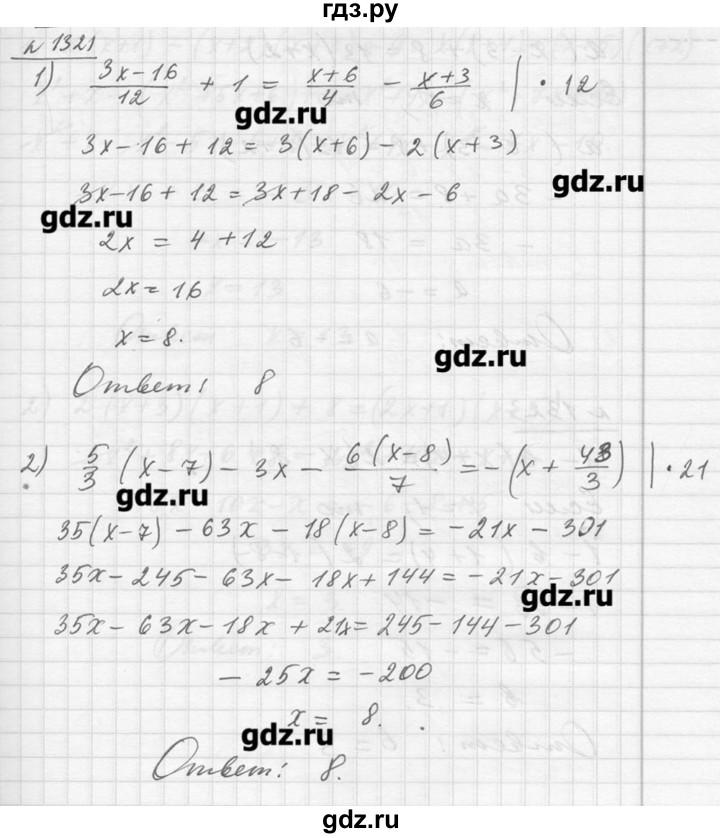 гдз.ру
№ 1321
1) (3x-16)/12 + 1 = (x+6)/4 - (x+3)/6 | · 12
gdz.ru
3x-16+12 = 3(x+6) - 2(x+3)
gdz.ru
3x-16+12 = 3x+18-2x-6
gdz.ru
2x = 4+12
2x = 16
x = 8.
gdz.ru
Ответ: 8
2) 5/3 (x-7) - 3x - 6(x-8)/7 = -(x + 43/3) | · 21
gdz.ru
35(x-7) - 63x - 18(x-8) = -21x - 301
35x - 245 - 63x - 18x + 144 = -21x - 301
gdz.ru
35x - 63x - 18x + 21x = 245 - 144 - 301
- 25x = -200
x = 8.
gdz.ru
Ответ: 8.
gdz.ru